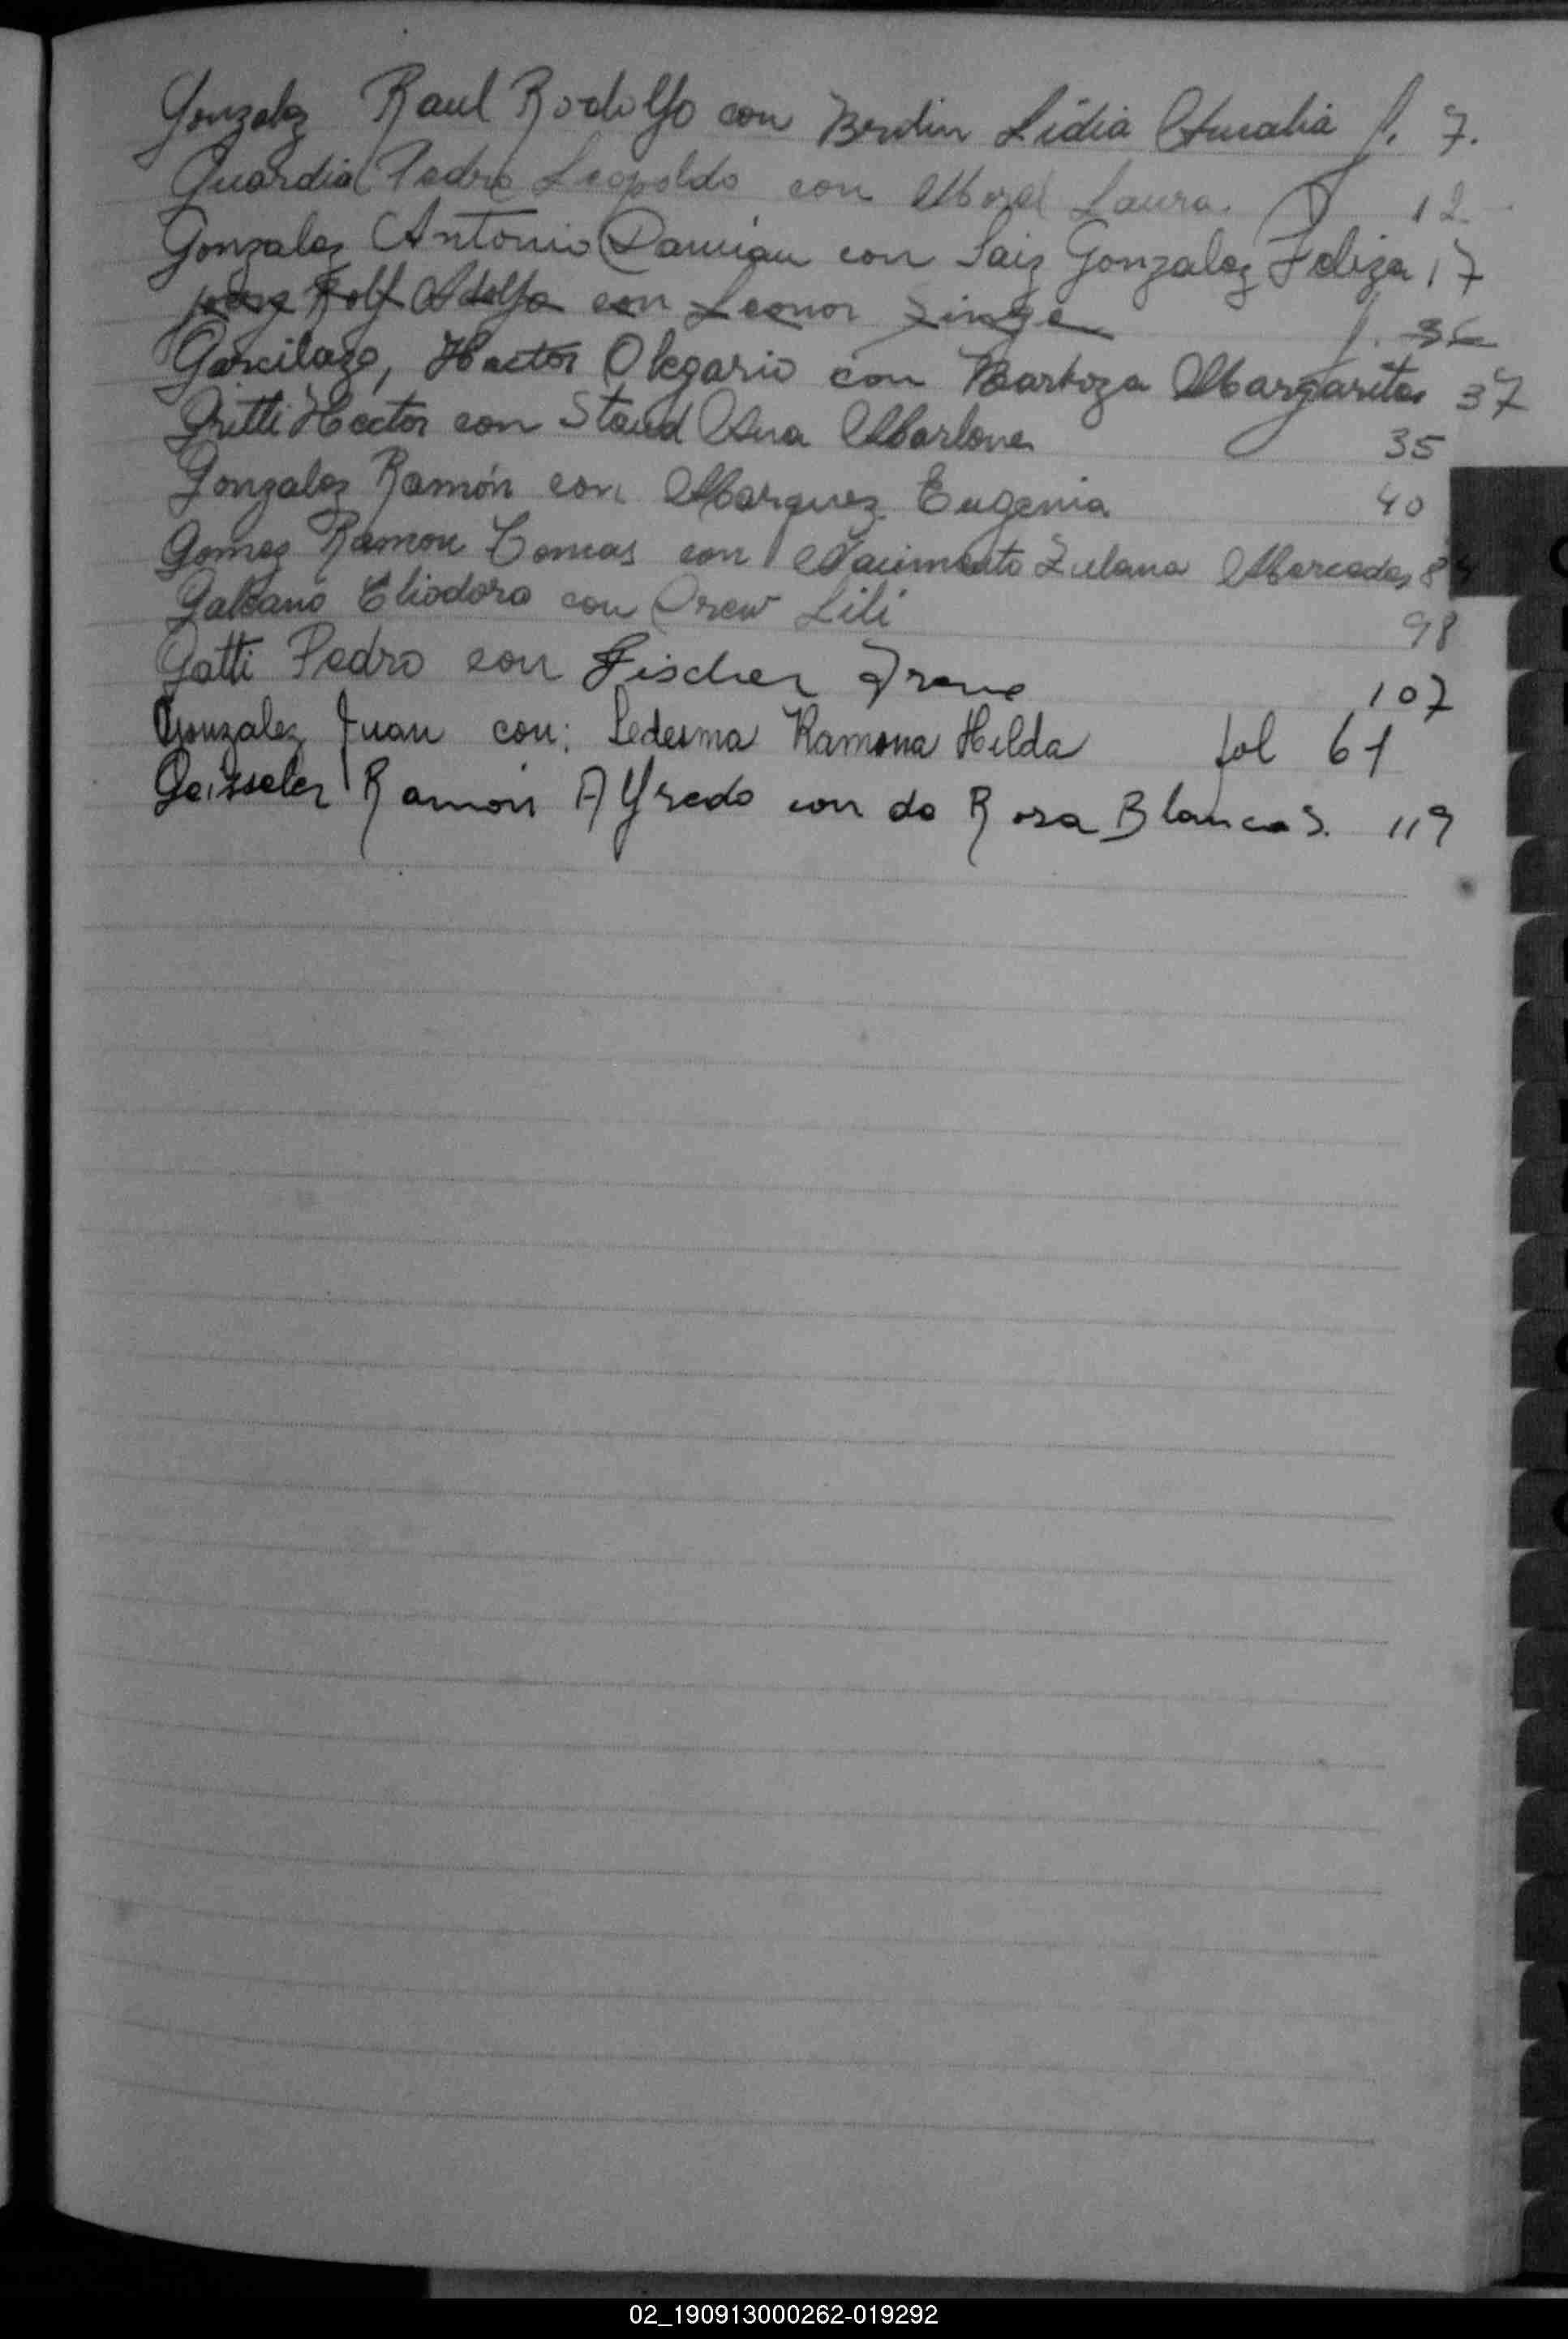 Gonzalez Raul Rodolfo con Berdin Lidia Amalia f. 7.
Guardia Pedro Leopoldo con Moral Laura. f 12
Gonzalez Antonio Damian con Saiz Gonzalez Feliza 17
Rolf Adolfo con Leonor Zinge f. 36
Garcilazo, Hector Olegario con Barboza Margarita 37
Gritti Hector con Staud Ana Marlone 35
Gonzalez Ramón con Marquez Eugenia 40
Gomez Ramon Tomas con Nacimento Zulana Mercedes 84
Galeano Eliodoro con Drew Lili 98
Gatti Pedro con Fischer Irene 107
Gonzalez Juan con: Ledesma Ramona Hilda fol 61
Geisseler Ramón Alfredo con da Rosa Blanca S. 119
02_190913000262-019292